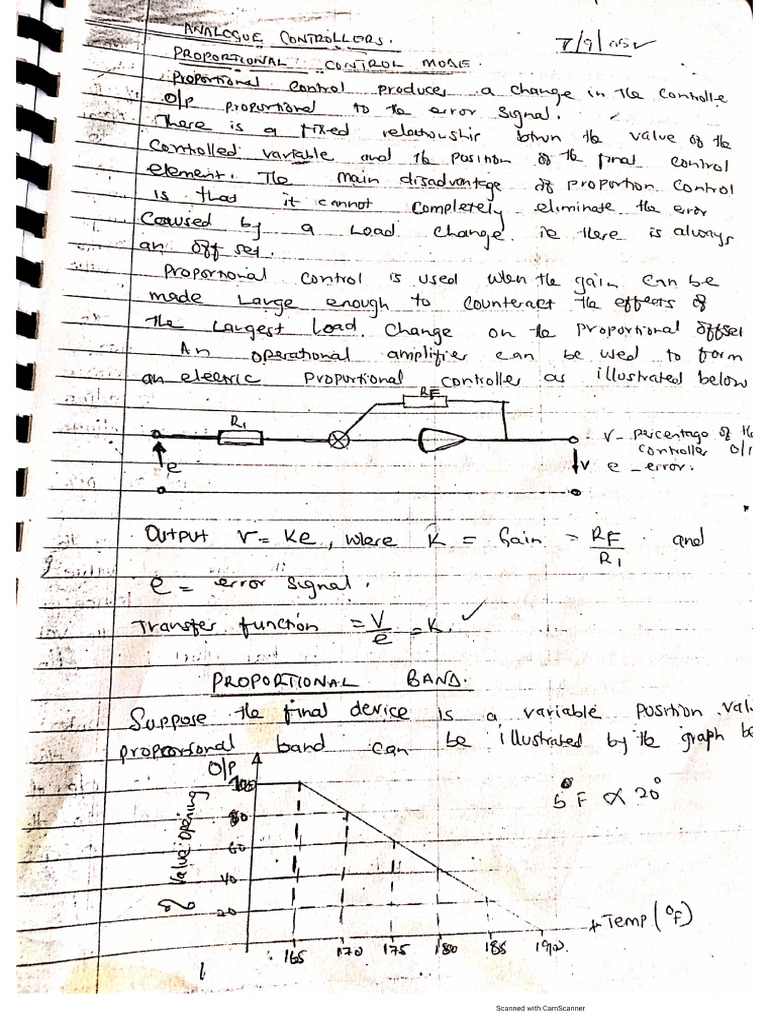 ANALOGUE CONTROLLERS.
PROPORTIONAL CONTROL MODE.
Proportional control produces a change in the controlle
O/P proportional to the error signal.
There is a fixed relationship btwn the value of the
controlled variable and the position of the final control
element. The main disadvantage of proportion control
is that it cannot completely eliminate the error
Caused by a Load change. ie there is always
an off set.
Proportional control is used when the gain can be
made Large enough to counteract the effects of
the Largest Load Change on the proportional offset
An operational amplifier can be used to form
an electric proportional controller as illustrated below
RF
R1
V - percentage of the
controller O/
e
V
e - error.
Output V = Ke, where K = Gain = RF/R1 and
e = error signal.
Transfer function = V/e = K. ✓
PROPORTIONAL BAND.
Suppose the final device is a variable position val
proportional band can be illustrated by the graph be
O/P
% Valve opening
100
80
60
40
20
5°F ∝ 20°
165 170 175 180 185 190
Temp (°F)
Scanned with CamScanner